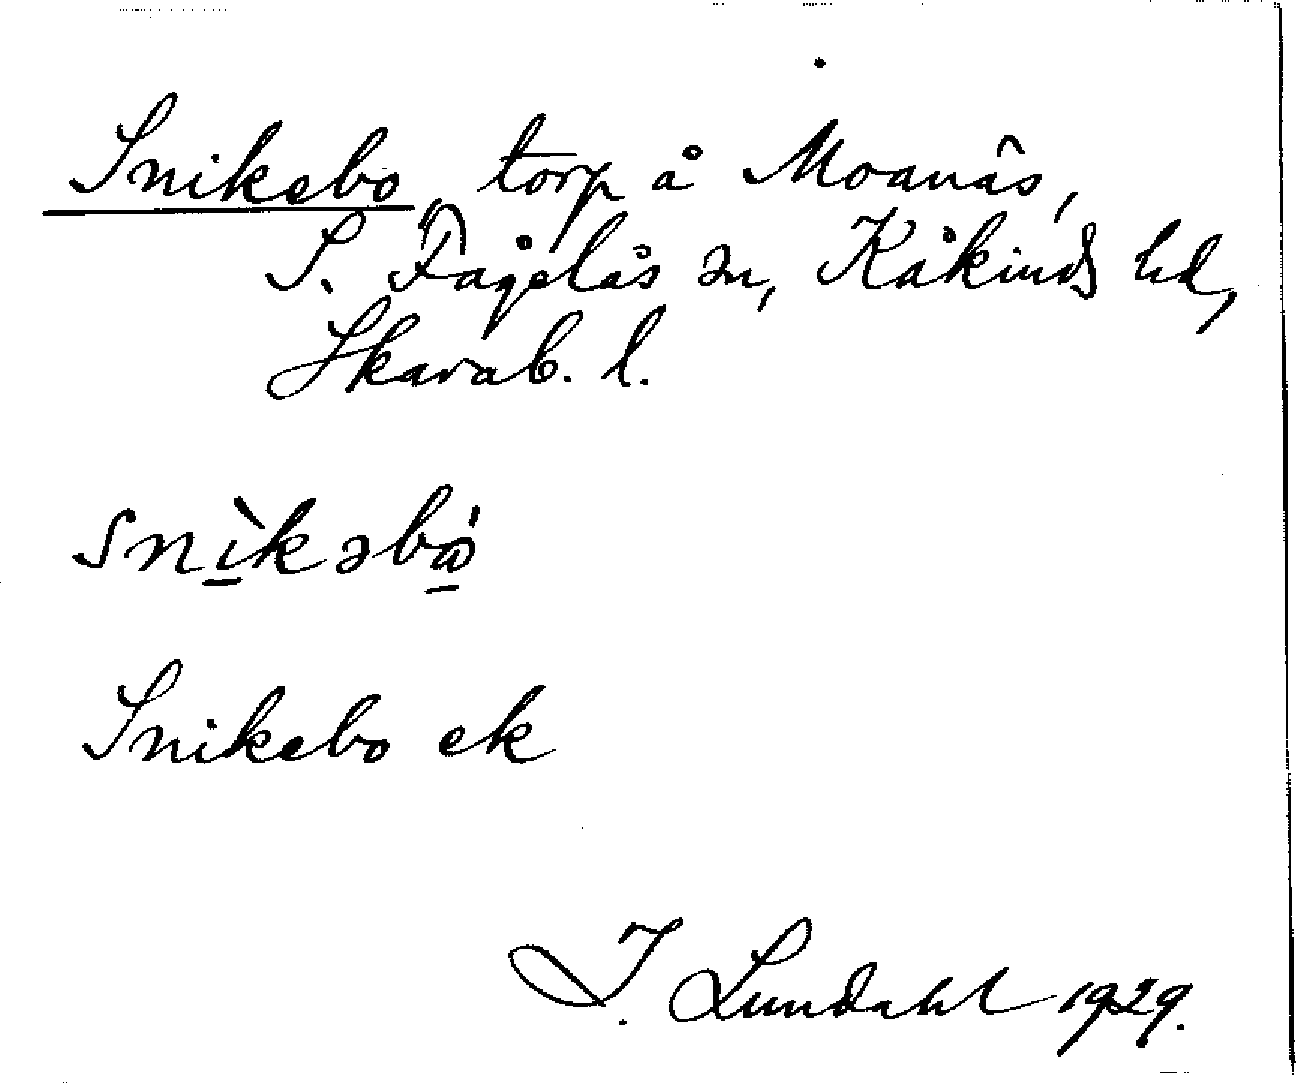 Snikebo, torp å Moanäs,
S. Fågelås sn, Kåkinds hd,
Skarab. l.
snìkəbó̤
Snikebo ek
I. Lundahl 1929.